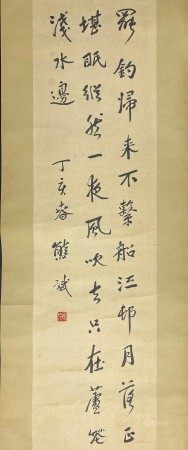 罷釣歸来不繫船江邨月落正
堪眠縱然一夜風吹去只在蘆花
淺水邊
丁亥春熊斌